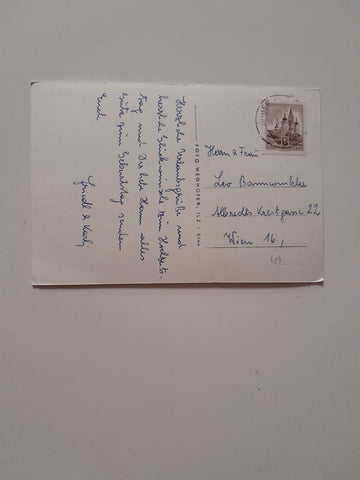 Herzliche Urlaubsgrüße und
herzliche Glückwünsche zum Hochzeits-
tag und Dir liebe Hermi alles
Gute zum Geburtstag senden
Euch
Karli
FOTO WEGHOFER, ILZ / Stmk
Herrn u Frau
Leo
Albrecht Kreitgasse 22
Wien 16.,